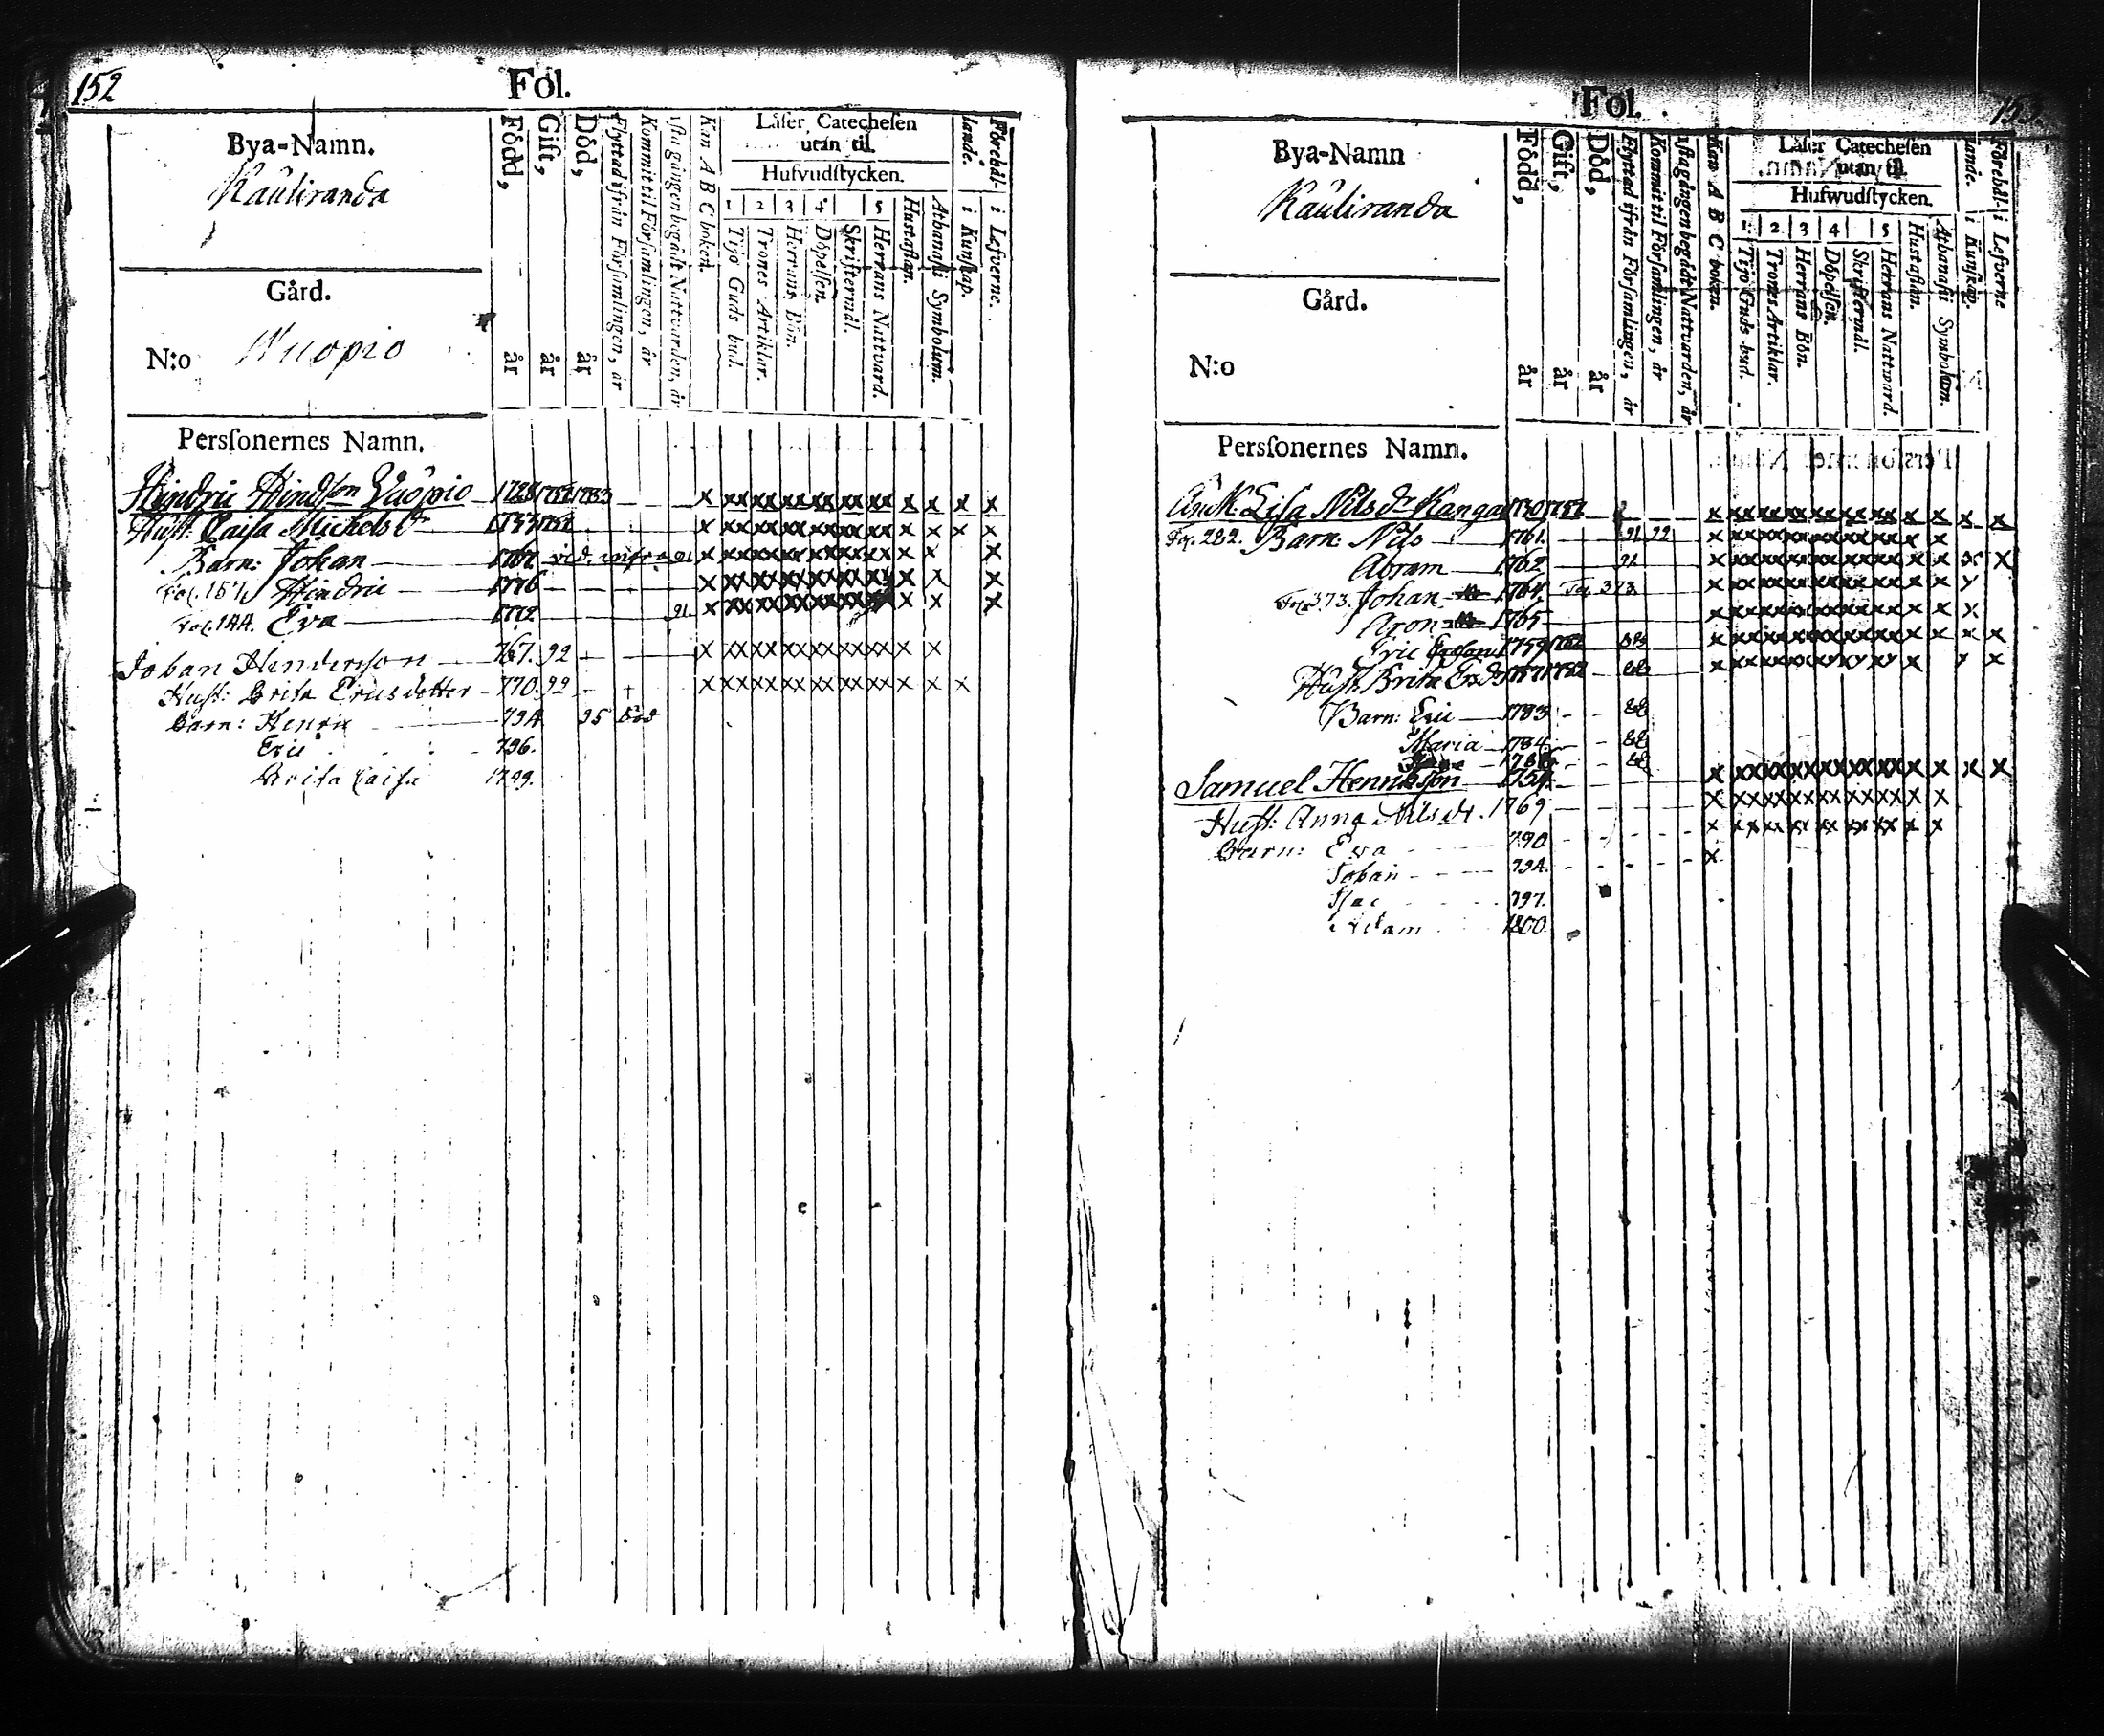 152
Fol.
Bya-Namn.
Kauliranda
Gård.
N:o Wuopio
Född, år
Gift, år
Död, år
Flyttad ifrån Församlingen, år
Kommit til Församlingen, år
gången begådt Nattvarden, år
Kan A B C boken.
Läser Catechesen
utan til.
Hufvudstycken.
1 2 3 4 5
Tijo Guds bud.
Trones Artiklar.
Herrans Bön.
Döpelsen.
Skriftermål.
Herrans Nattvard.
Hustaflan.
Athanasii Symbolum.
i Kunskap.
i Lefverne.
Perssonernes Namn.
Hindric Hindsson Vuopio 1728 1783
Hust. Caisa Michels dr 1733
Barn: Johan 1767. vid. infra 91
Fol. 157. Hindric 1776
Fol. 144. Eva 1772 91.
Johan Hendersson 767. 92
Hust: Brita Ericsdotter 770. 92
Barn: Henric 794 95 död
Eric 796.
Brita Caisa 1799.
153.
Fol.
Bya-Namn
Kauliranda
Gård.
N:o
Född, år
Gift, år
Död, år
Flyttad ifrån Församlingen, år
Kommit til Församlingen, år
gången begådt Nattvarden, år
Kan A B C boken.
Läser Catechesen
utan til.
Hufwudstycken.
1 2 3 4 5
Tijo Guds bud.
Trones Artiklar.
Herrans Bön.
Döpelsen.
Skriftermål.
Herrans Nattward.
Hustaflan.
Athanasii Symbolum.
i Kunskap.
i Lefverne
Perssonernes Namn.
Enk. Lisa Nils dr Kangas 1730
Fol. 282. Barn: Nils 1761. 91 92
Abram 1762 91
Fol. 373. Johan 1764. Fol. 373
Aron 1765
Eric 1759 1782
Hust. Brita 1757 1782
Barn: Eric 1783
Maria 1784
Samuel Henriksson 1754
Hust: Anna Nilsdr. 1769
Barn: Eva 790
Johan 794
Isac 797.
Adam 1800